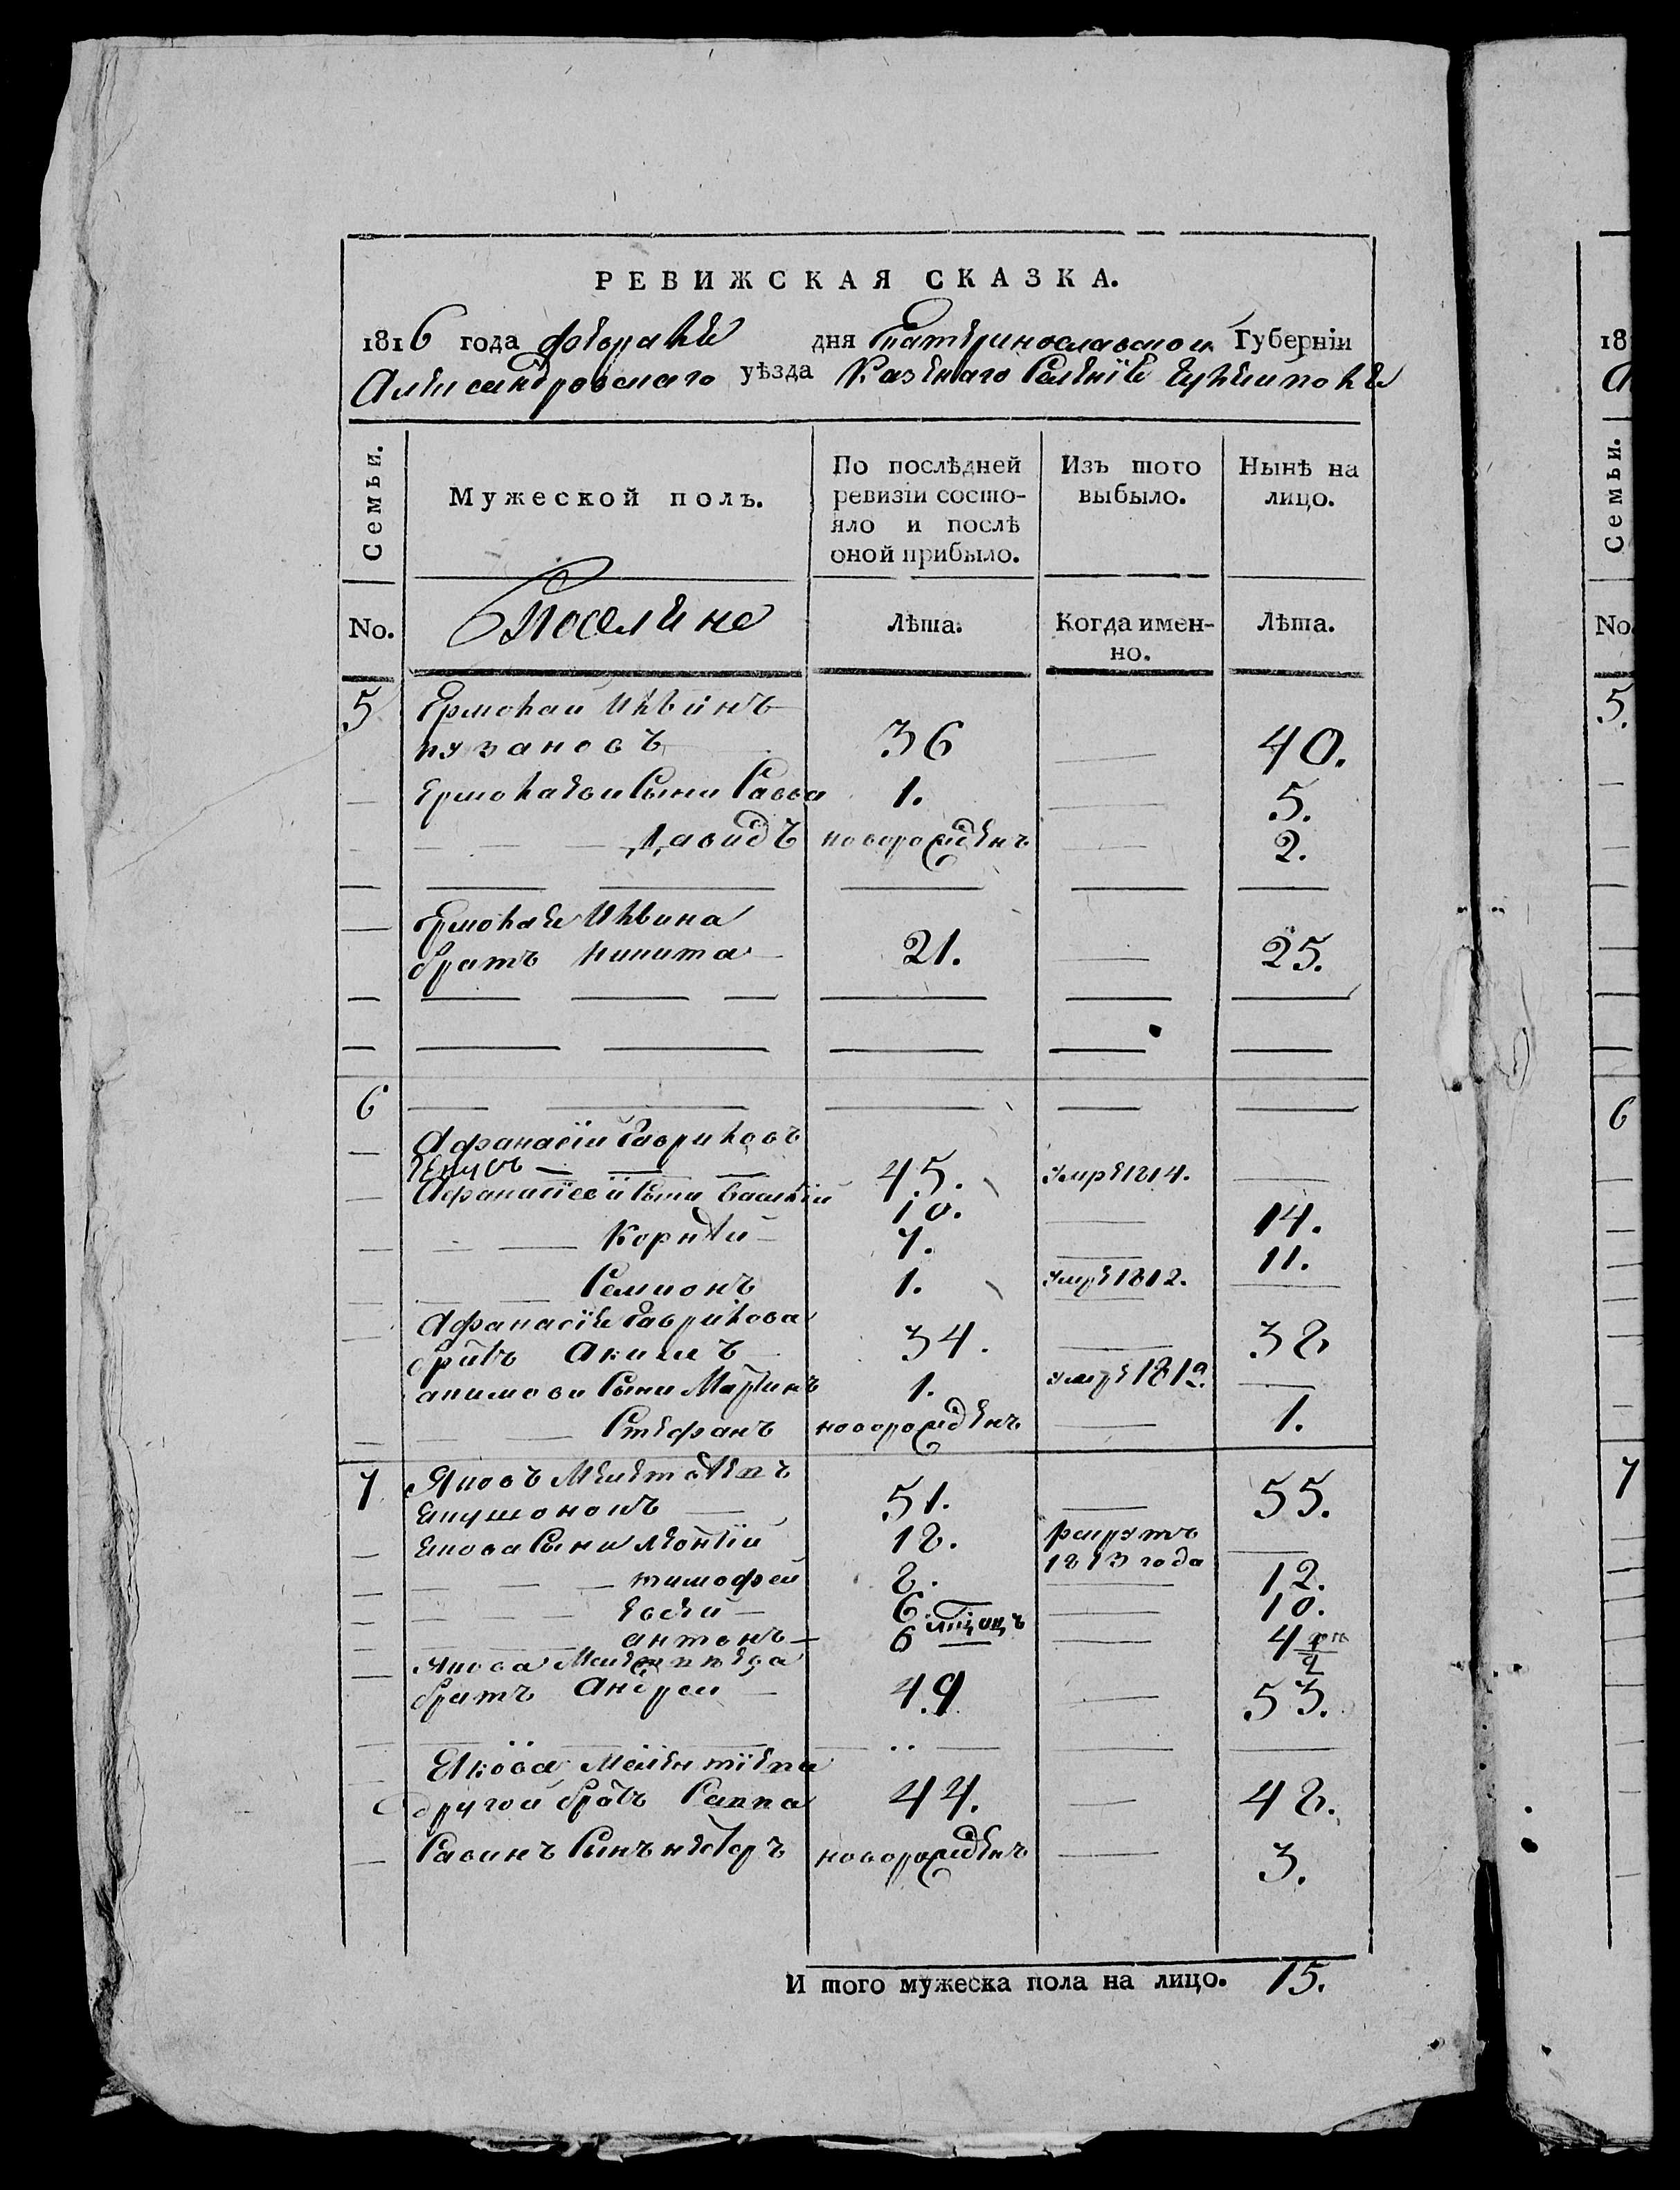 РЕВИЖСКАЯ СКАЗКА.
1816 года февраля дня Екатеринославской Губерніи
Александровскаго уѣзда Казеннаго Селенія
Семьи. Мужеской полъ. По послѣдней ревизіи состояло и послѣ оной прибыло. Изъ того выбыло. Нынѣ на лицо.
No. Поселяне Лѣта. Когда именно. Лѣта.
5 Ермолай Ильинъ
пузановъ 36 40.
Ермолаевы Сыни Савва 1. 5.
Давидъ новорожденъ 2.
Ермолая Ильина
братъ никита 21. 25.
6
Афанасій Гавриловъ
45. умре 1814.
Афанасіеві Сыни Василій 10. 14.
Корнѣй 7. 11.
Семионъ 1. умре 1812.
Афанасія Гаврилова
братъ Акимъ 34. 38
акимови Сыни Мартинъ 1. умре 1812.
Стефанъ новорожденъ 1.
7 Яковъ
51. 55.
Якова Сыни леонтій 18. рекрутъ
1813 года
тимофей 8. 12.
Евсей 6. 10.
антонъ 6 мѣсяцъ 4 1/2
Якова
братъ Андрей 49 53.
Якова
другой братъ Савва 44. 48.
Савинъ Сынъ нестеръ новорожденъ 3.
И того мужеска пола на лицо. 15.
18
А
Семьи.
No.
5.
6
7